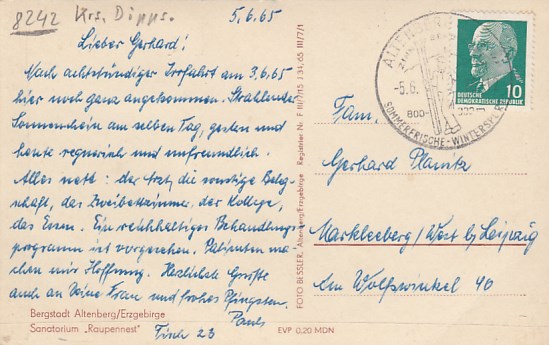 8242 Krs. Dipps.
5.6.65
Lieber Gerhard!
Nach achtstündiger Irrfahrt am 3.6.65
hier noch ganz angekommen. Strahlender
Sonnenschein am selben Tag, gestern und
heute regnerisch und unfreundlich.
Alles nett: der Arzt, die sonstige Beleg-
schaft, das Zweibettzimmer, der Kollege,
das Essen. Ein reichhaltiges Behandlungs-
programm ist vorgesehen. Patienten ma-
chen mir Hoffnung. Herzlichste Grüße
auch an Deine Frau und frohes Pfingsten.
Paul
Tisch 23
Bergstadt Altenberg/Erzgebirge
Sanatorium „Raupennest"
EVP 0,20 MDN
FOTO BESSLER, Altenberg/Erzgebirge Registrier Nr. F III/715 / J 31.65 III/7/1
ALTENBERG
-5.6.
800-
SOMMERFRISCHE-WINTERSPORT
DEUTSCHE
DEMOKRATISCHE REPUBLIK
10
Fam.
Gerhard Planitz
Markkleeberg/West b/ Leipzig
Am Wolfswinkel 40